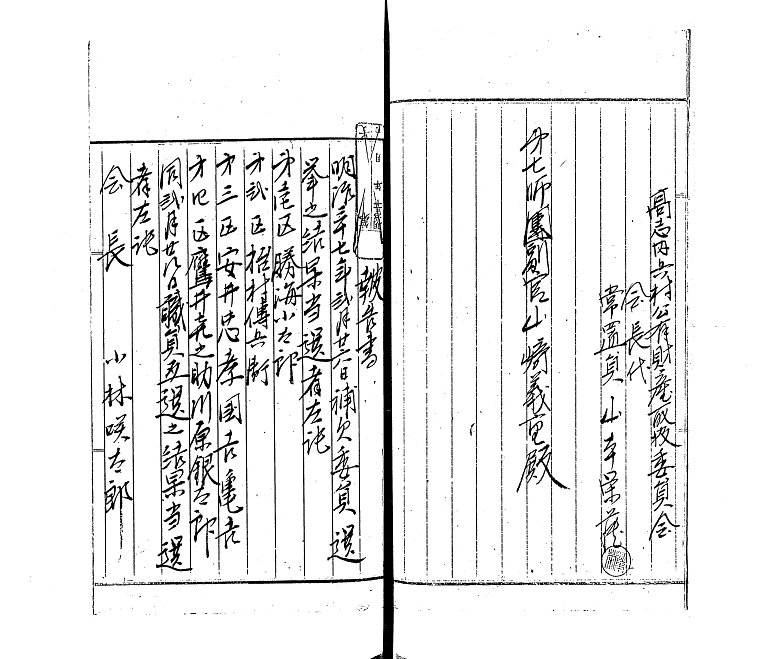 高志内兵村公有財産取扱委員会
会長代
常置員 山本栄蔵
第七師團副官山﨑義重殿
報告書
明治三十七年弐月廿六日補欠委員選
挙之結果当選者左記
第壱区勝海小太郎
第弐区植村傳兵衛
第三区安井忠孝国吉亀吉
第四区鷹井堯之助川原銀太郎
同弐月廿八日職員互選之結果当選
者左記
会長 小林咲太郎